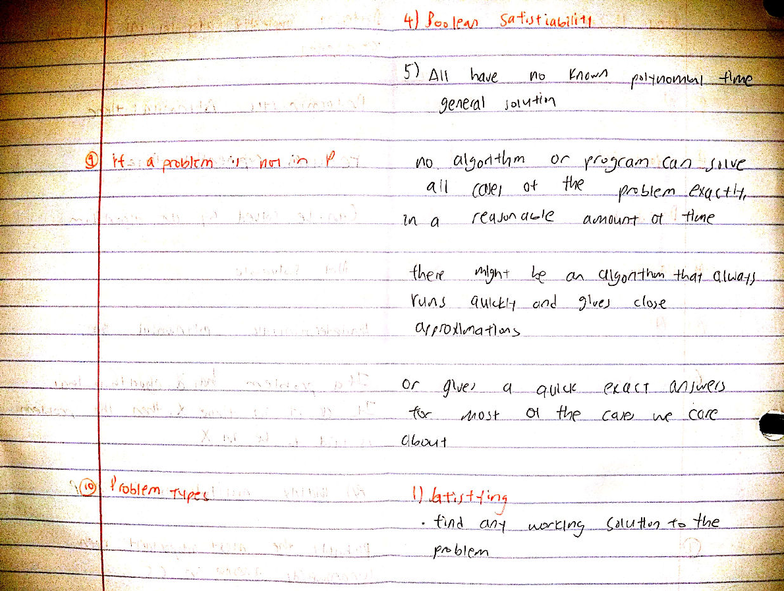 4) Boolean Satistiability
5) All have no known polynomial time
general solution
9 If a problem is not in P no algorithm or program can solve
all cases of the problem exactly,
in a reasonable amount of time
there might be an algorithm that always
runs quickly and gives close
approximations
or gives a quick exact answers
for most of the cases we care
about
10 Problem Types 1) Satisfying
· find any working solution to the
problem